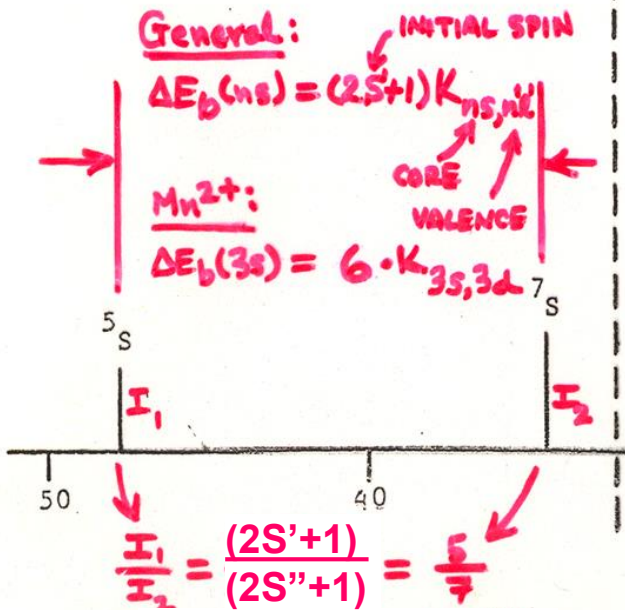 General: INITIAL SPIN
ΔE_b(ns) = (2S+1) K_ns,n'l'
CORE
VALENCE
Mn²⁺:
ΔE_b(3s) = 6 · K_3s,3d
⁵S ⁷S
I₁ I₂
50 40
I₁/I₂ = (2S'+1)/(2S"+1) = 5/7